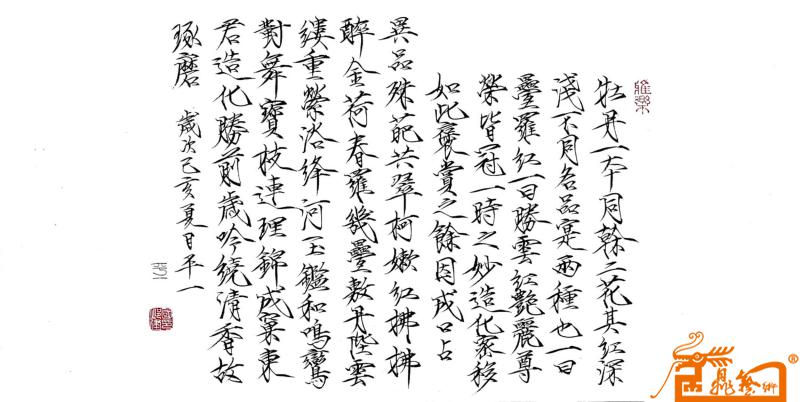 牡丹一本同榦二花其紅深
淺不同名品寔兩種也一曰
疊羅紅一曰勝雲紅艷麗尊
榮皆冠一時之妙造化密移
如此褒賞之餘因成口占
異品殊葩共翠柯嫩紅拂拂
醉金荷春羅幾疊敷丹陛雲
縷重縈浴絳河玉鑑和鳴鸞
對舞寶枝連理錦成窠東
君造化勝前歲吟繞清香故
琢磨 歲次己亥夏日平一